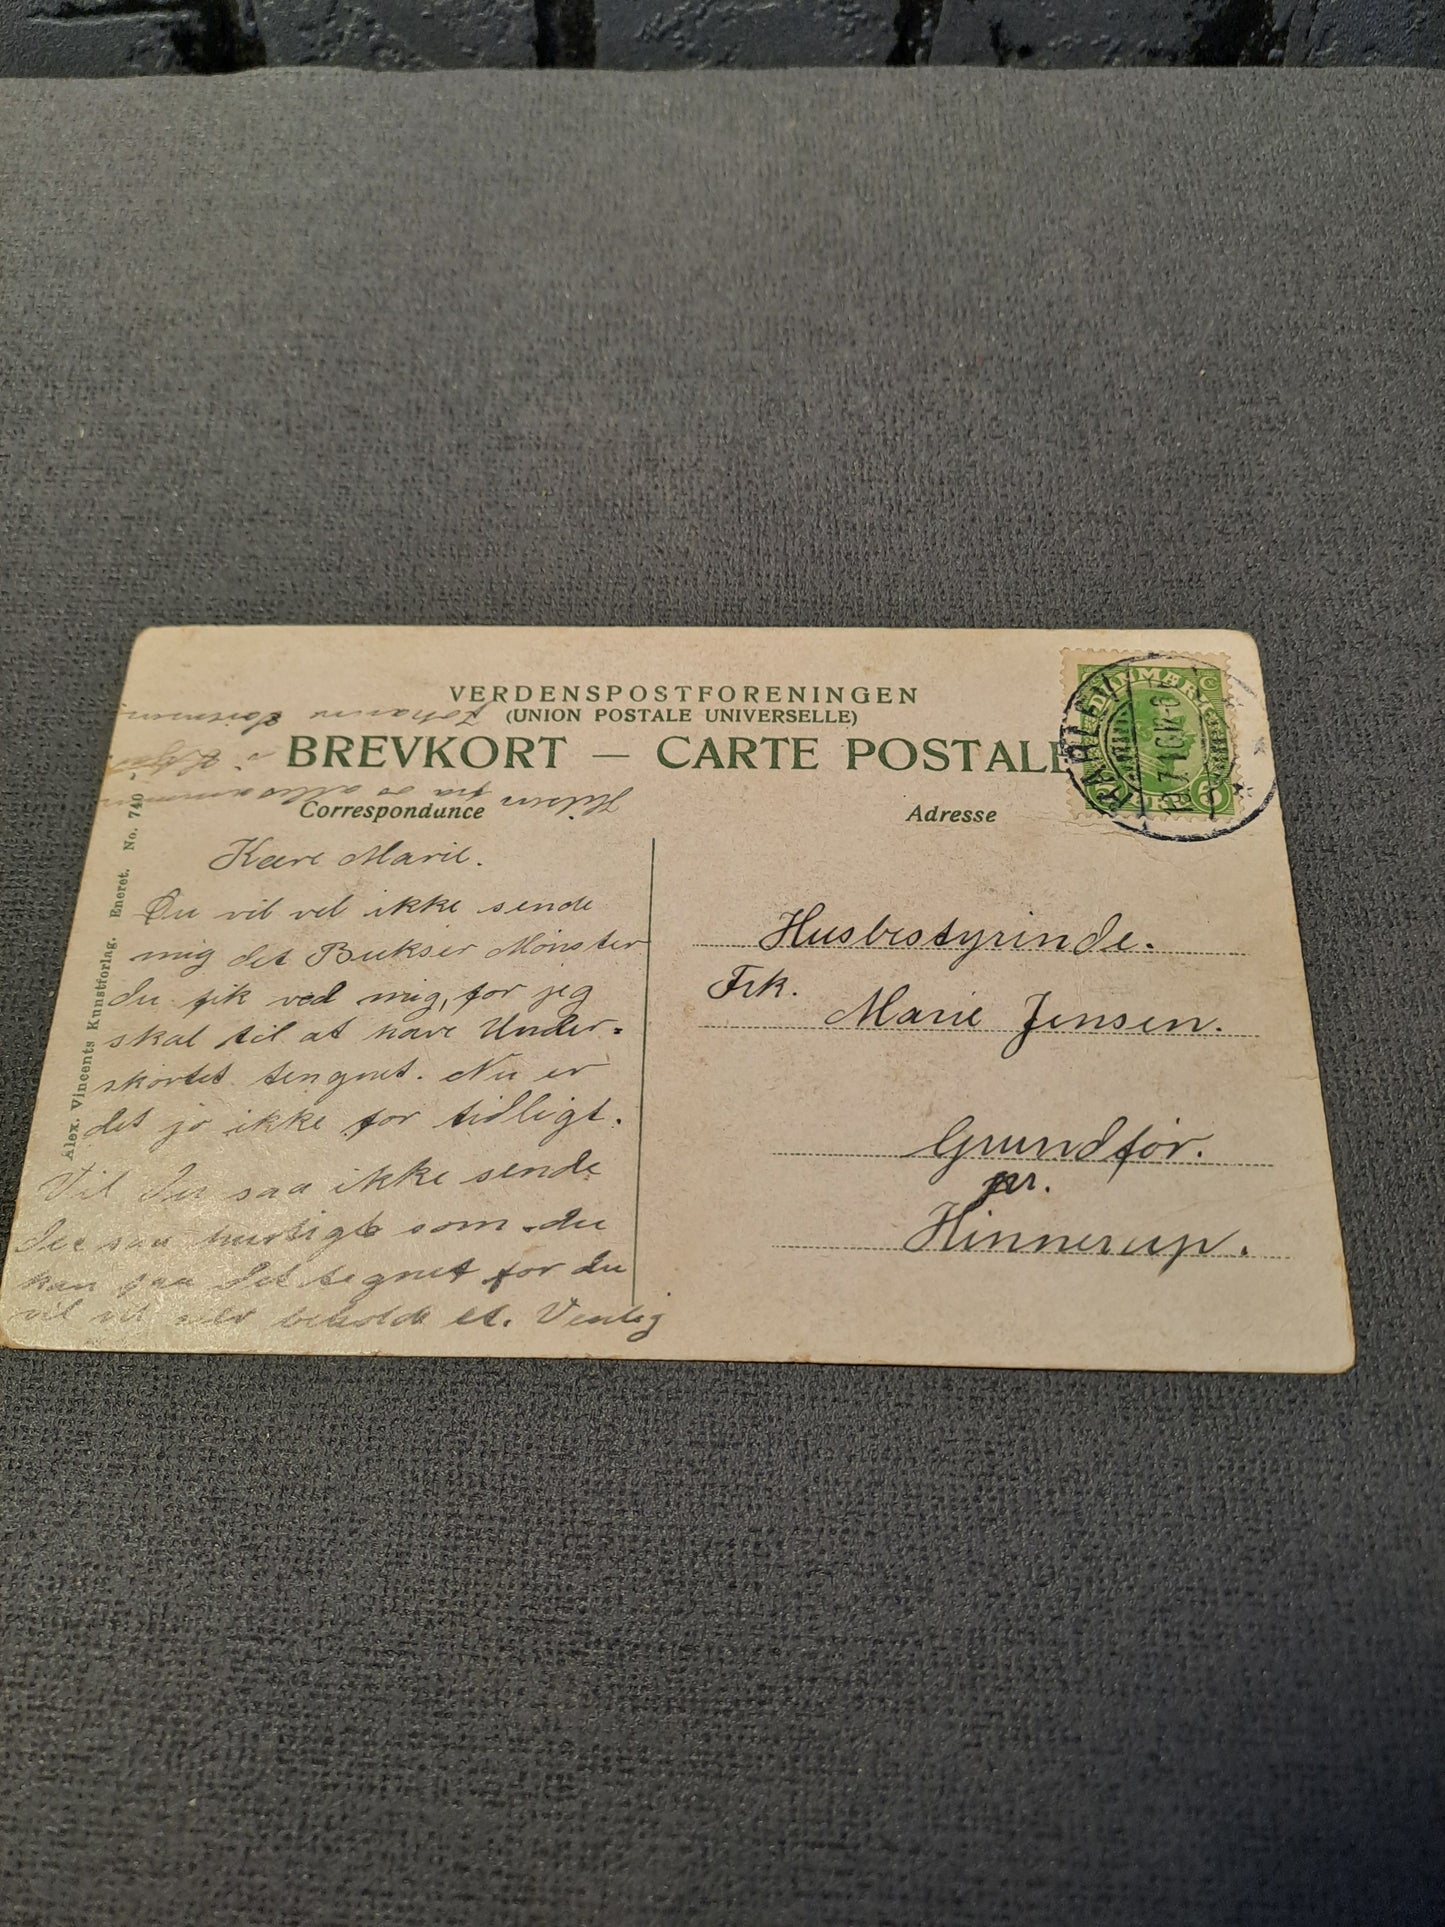 VERDENSPOSTFORENINGEN
(UNION POSTALE UNIVERSELLE)
BREVKORT — CARTE POSTALE
Correspondunce
Adresse
Kære Marie.
Du vil vel ikke sende
mig det Bukser Mønster
du fik ved mig, for jeg
skal til at have Under-
skørtet tengnet. Nu er
det jo ikke for tidligt.
Vil du saa ikke sende
det saa hurtigt som du
kan faa det tegnet for du
vil vel selv beholde et. Venlig
Hilsen fra os allesammen
Johanne
Husbestyrinde.
Frk.
Marie Jensen.
Grundfør.
pr.
Hinnerup.
Alex. Vincents Kunstforlag. Eneret. No. 740
DANMARK